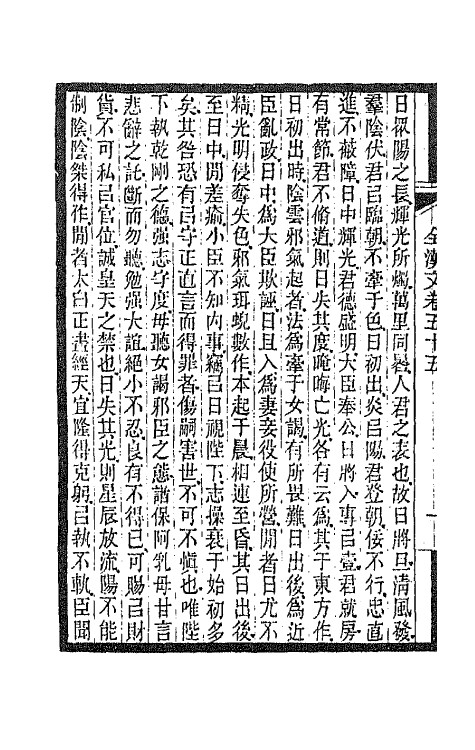 全漢文卷五十五
日眾陽之長輝光所燭萬里同晷人君之表也故日將旦清風發
羣陰伏君㠯臨朝不牽于色日初出炎㠯陽君登朝佞不行忠直
進不蔽障日中輝光君德盛明大臣奉公日將入專㠯壹君就房
有常節君不脩道則日失其度晻晦亡光各有云爲其于東方作
日初出時陰雲邪氣起者法爲牽于女謁有所畏難日出後爲近
臣亂政日中爲大臣欺誣日且入爲妻妾役使所營閒者日尤不
精光明侵奪失色邪氣珥蜺數作本起于晨相連至昏其日出後
至日中閒差瘉小臣不知內事竊㠯日視陛下志操衰于始初多
矣其咎恐有㠯守正直言而得罪者傷嗣害世不可不愼也唯陛
下執乾剛之德強志守度毋聽女謁邪臣之態諸保阿乳母甘言
悲辭之託斷而勿聽勉強大誼絕小不忍良有不得已可賜㠯財
貨不可私㠯官位誠皇天之禁也日失其光則星辰放流陽不能
制陰陰桀得作閒者太白正晝經天宜隆得克躬㠯執不軌臣聞